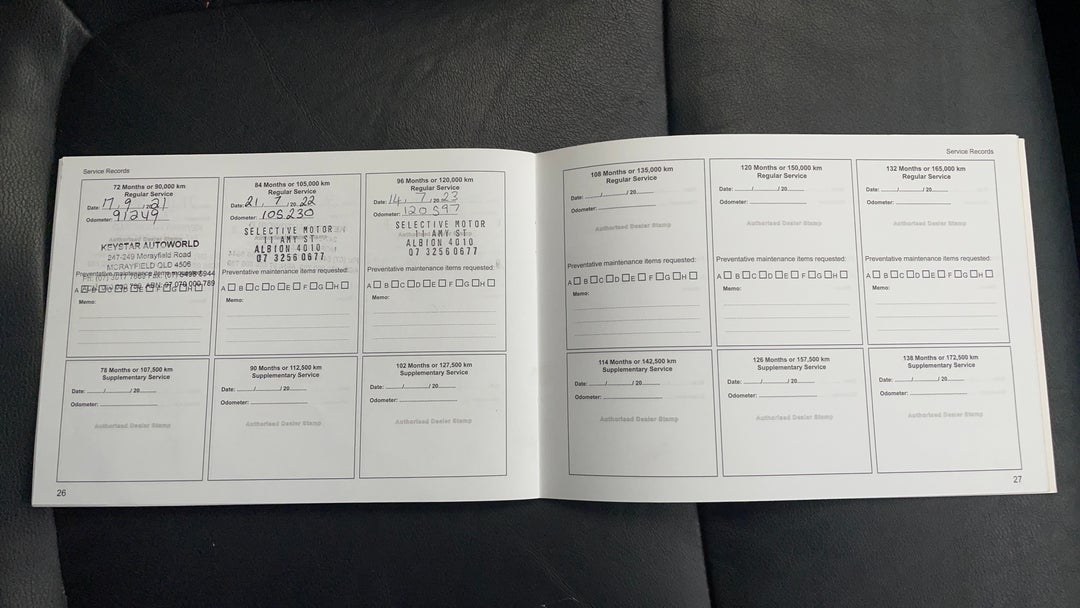 Service Records
72 Months or 90,000 km
Regular Service
Date: 17 / 9 / 2021
Odometer: 91249
KEYSTAR AUTOWORLD
247-249 Morayfield Road
MORAYFIELD QLD 4506
Preventative maintenance items requested:
A B C D E F G H
Memo:
84 Months or 105,000 km
Regular Service
Date: 21 / 7 / 20 22
Odometer: 105230
SELECTIVE MOTOR
11 AMY ST
ALBION 4010
07 3256 0677
Preventative maintenance items requested:
A B C D E F G H
Memo:
96 Months or 120,000 km
Regular Service
Date: 14 / 7 / 20 23
Odometer: 120597
SELECTIVE MOTOR
11 AMY ST
ALBION 4010
07 3256 0677
Preventative maintenance items requested:
A B C D E F G H
Memo:
78 Months or 107,500 km
Supplementary Service
Date: / / 20
Odometer:
Authorised Dealer Stamp
90 Months or 112,500 km
Supplementary Service
Date: / / 20
Odometer:
Authorised Dealer Stamp
102 Months or 127,500 km
Supplementary Service
Date: / / 20
Odometer:
Authorised Dealer Stamp
26
Service Records
108 Months or 135,000 km
Regular Service
Date: / / 20
Odometer:
Authorised Dealer Stamp
Preventative maintenance items requested:
A B C D E F G H
Memo:
120 Months or 150,000 km
Regular Service
Date: / / 20
Odometer:
Authorised Dealer Stamp
Preventative maintenance items requested:
A B C D E F G H
Memo:
132 Months or 165,000 km
Regular Service
Date: / / 20
Odometer:
Authorised Dealer Stamp
Preventative maintenance items requested:
A B C D E F G H
Memo:
114 Months or 142,500 km
Supplementary Service
Date: / / 20
Odometer:
Authorised Dealer Stamp
126 Months or 157,500 km
Supplementary Service
Date: / / 20
Odometer:
Authorised Dealer Stamp
138 Months or 172,500 km
Supplementary Service
Date: / / 20
Odometer:
Authorised Dealer Stamp
27